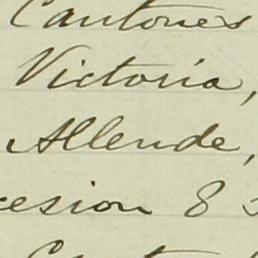 Cantones
Victoria,
Allende,
cesion 8